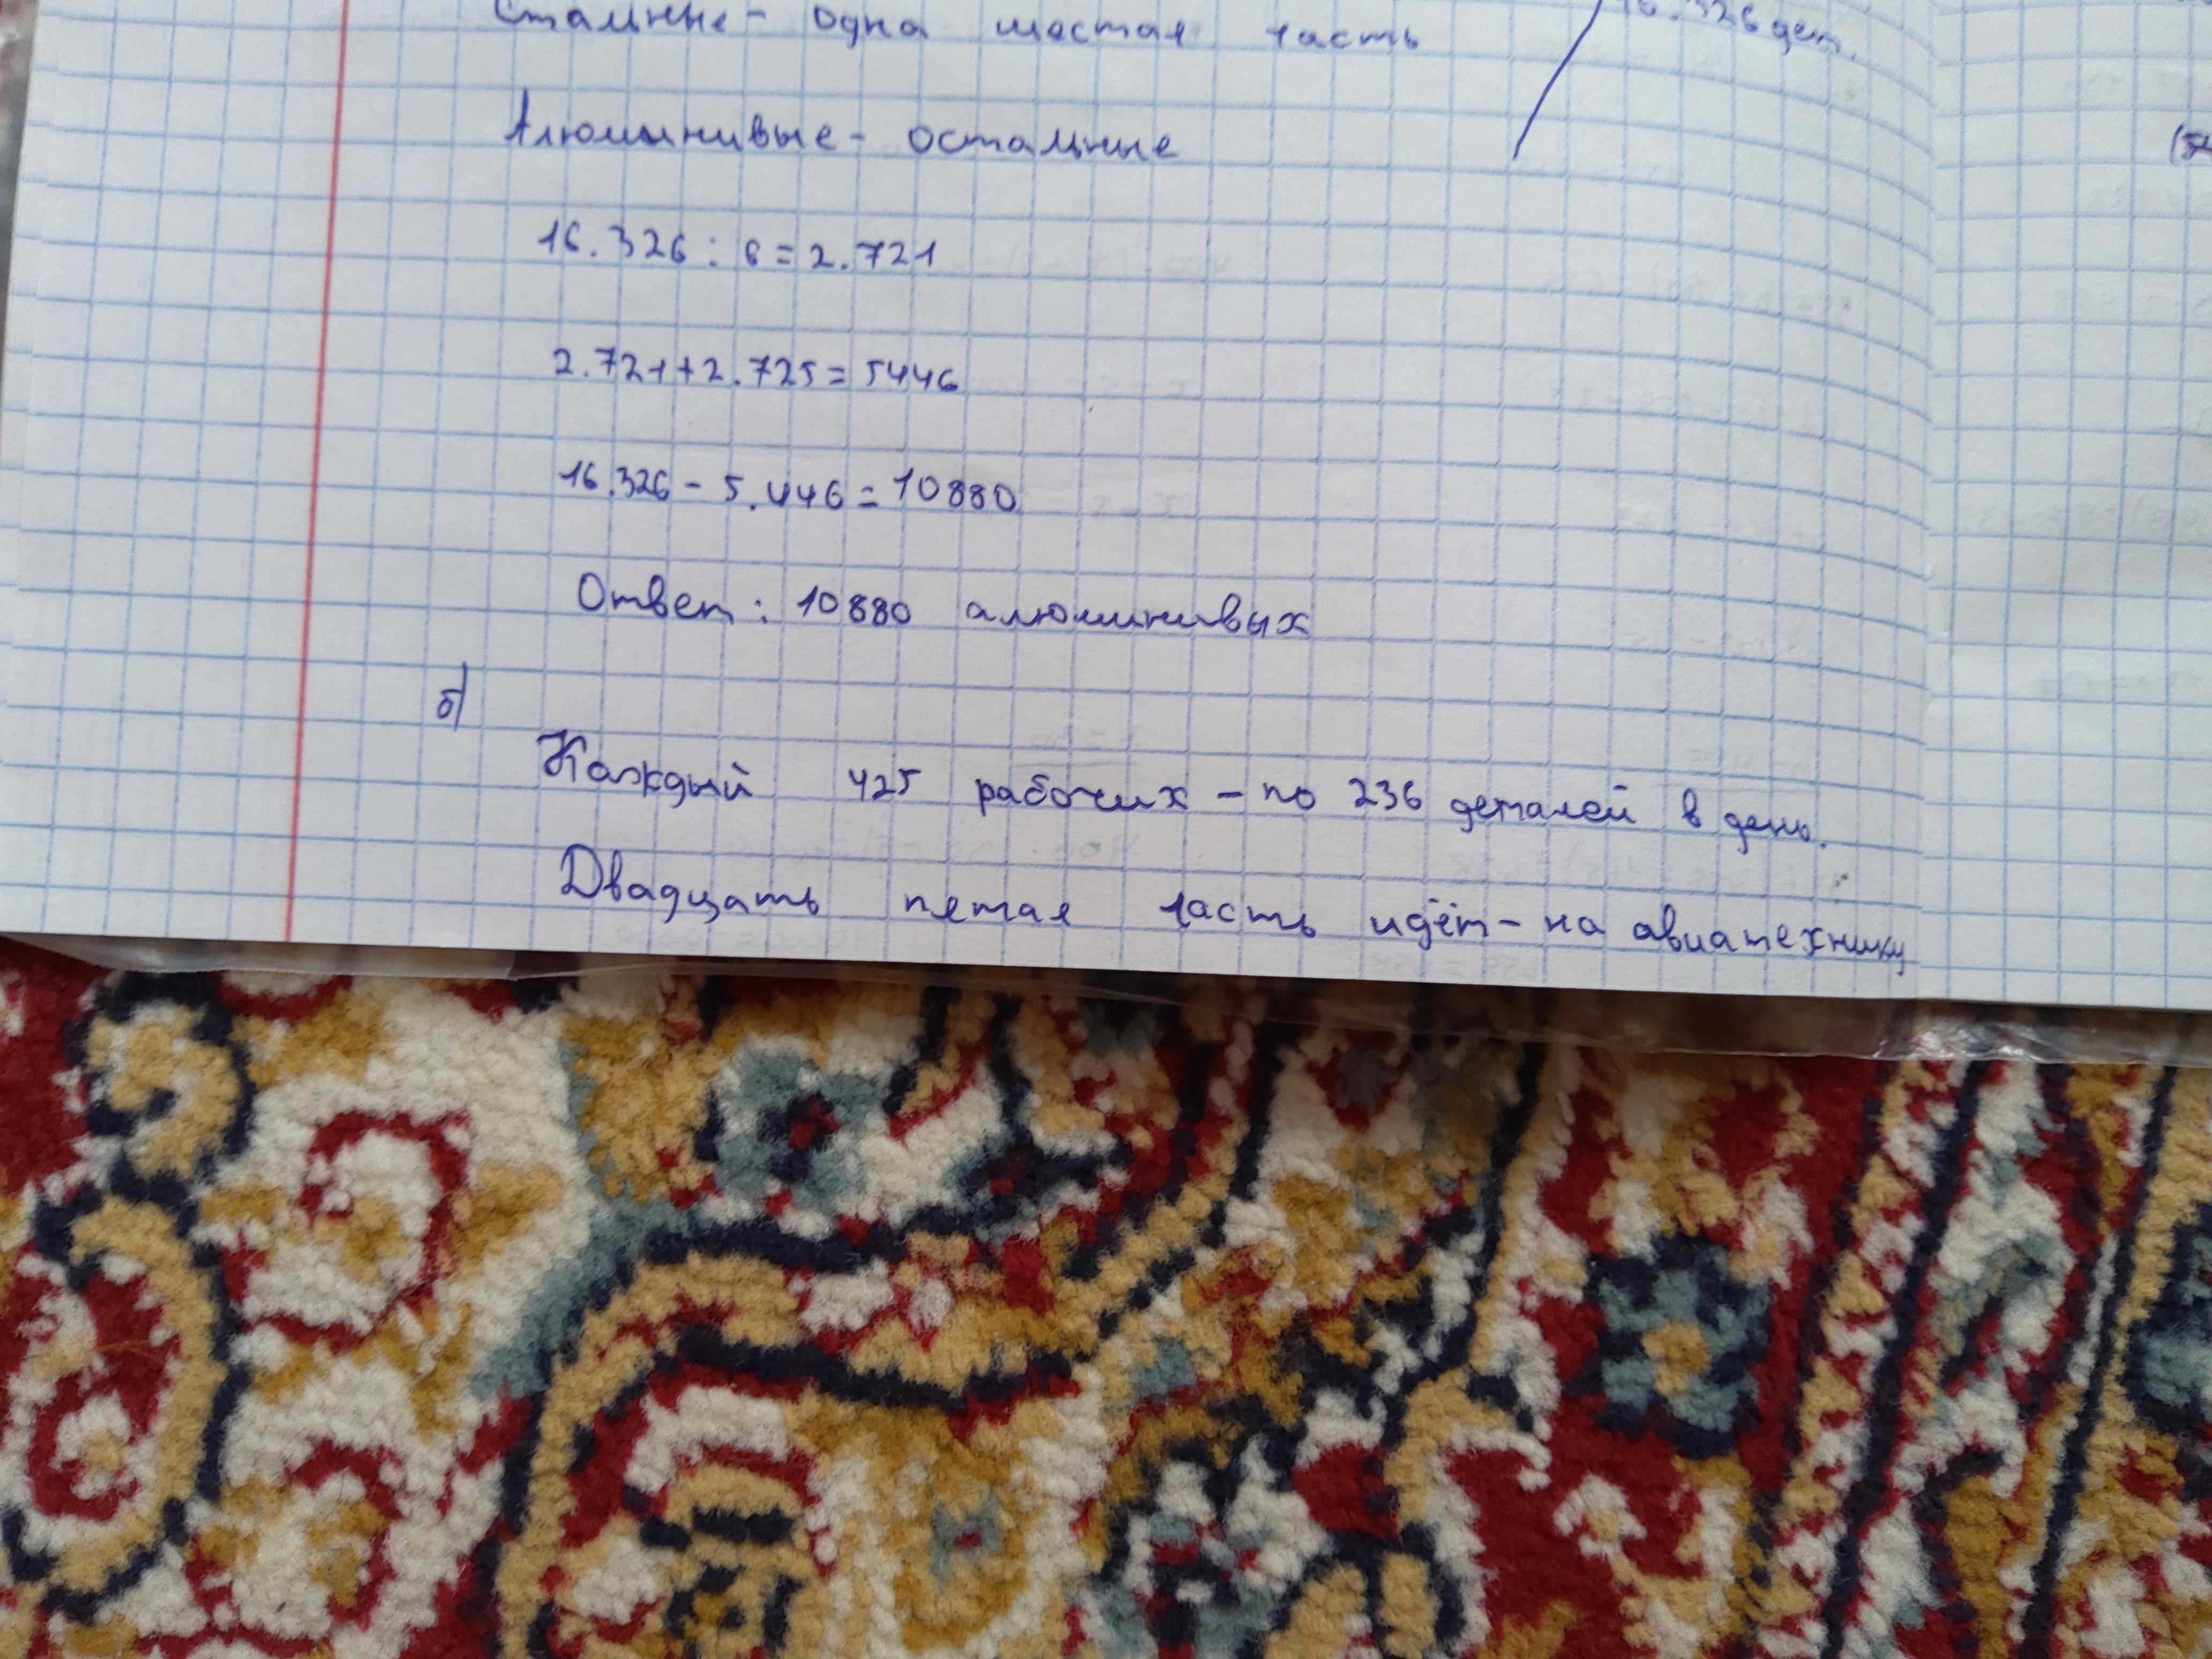 Стальные - одна шестая часть
16.326 дет.
Алюминивые - остальные
16.326 : 6 = 2.721
2.721 + 2.725 = 5446
16.326 - 5.446 = 10880
Ответ: 10880 алюминивых
б)
Каждый 425 рабочих - по 236 деталей в день.
Двадцать пятая часть идёт - на авиатехнику